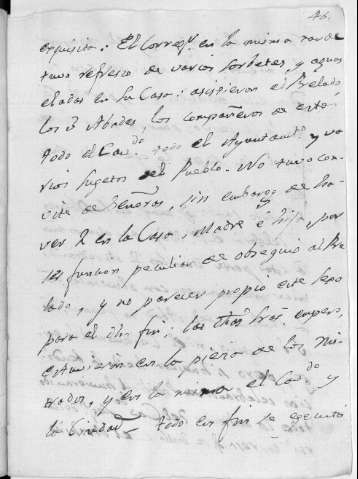 46.
exquisita: El Correg.r en la misma tarde
tuvo refresco de varios sorbetes, y aguas
eladas en su Casa: asistieron el Prelado
los 2 Abades, los compañeros de este
todo el Cav.do todo el Ayuntam.to y va
rios sugetos del Pueblo. No tuvo con
vite de Señoras, sin embargo de ha
ver 2 en la Casa, Madre é hija, por
ser funcion peculiar de obsequio al Pre
lado, y no parecer propio este
para el dho fin; las dhas Sras empero,
estuvieron en la pieza de los Mi
trados, y en la misma el Cav.do y
la Ciudad. todo en fin se egecutó